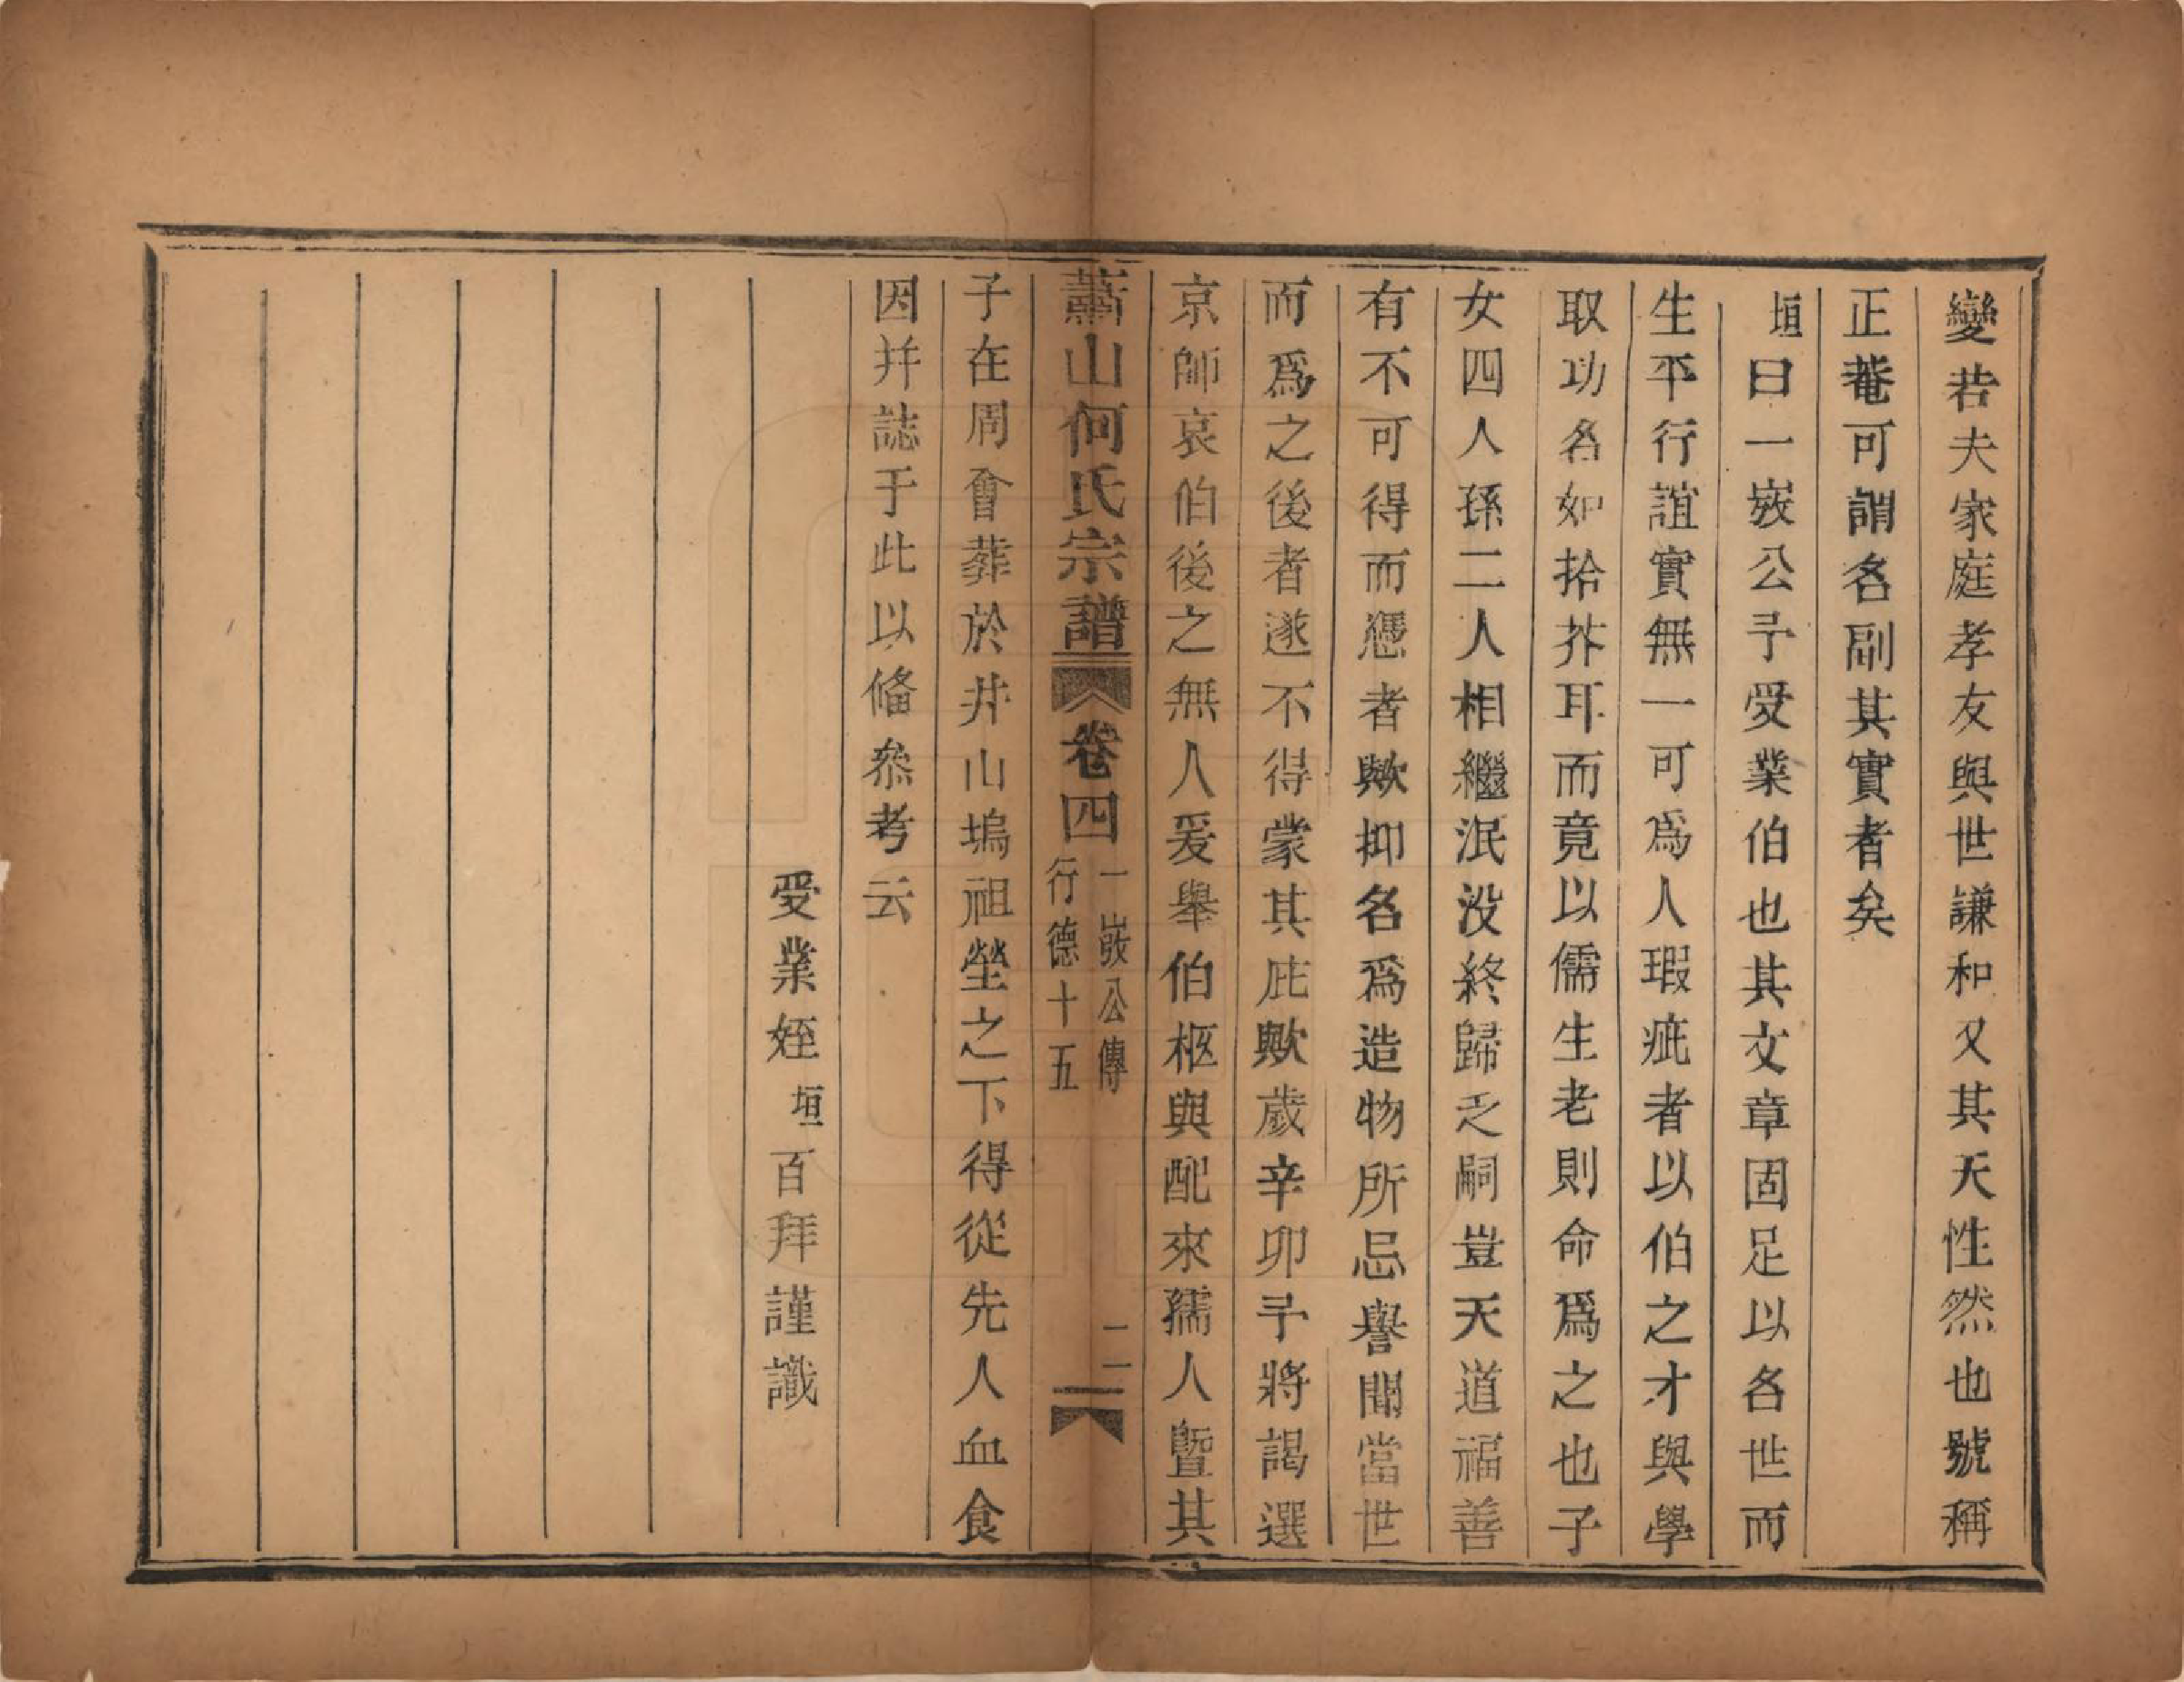 變若夫家庭孝友與世謙和又其天性然也號稱
正菴可謂名副其實者矣
垣曰一嶔公予受業伯也其文章固足以名世而
生平行誼實無一可爲人瑕疵者以伯之才與學
取功名如拾芥耳而竟以儒生老則命爲之也子
女四人孫二人相繼泯没終歸乏嗣豈天道福善
有不可得而慿者歟抑名爲造物所忌譽聞當世
而爲之後者遂不得蒙其庇歟歲辛卯予將謁選
京師哀伯後之無人爰舉伯柩與配來孺人曁其
蕭山何氏宗譜 卷四 一嶔公傳 行德十五 二一
子在周會葬於井山塢祖塋之下得從先人血食
因并誌于此以俻叅考云
受業姪垣百拜謹識